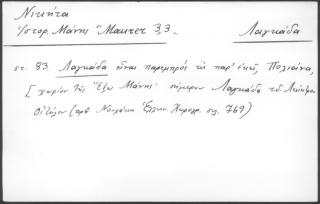 Νικήτα
Ἱστορ. Μάνης "Maurer 3,3. Λαγκάδα
στ. 83. Λαγκάδα εἶναι παρεμπρός κι παρ' ἐκεῖ, Πολιάνα,
[χωρίον τῆς Ἔξω Μάνης· σήμερον Λαγκάδα τοῦ
Οἰτύλου (πρβ. Νουχάκη Ἑλλην. Χωρογρ. σελ. 769)